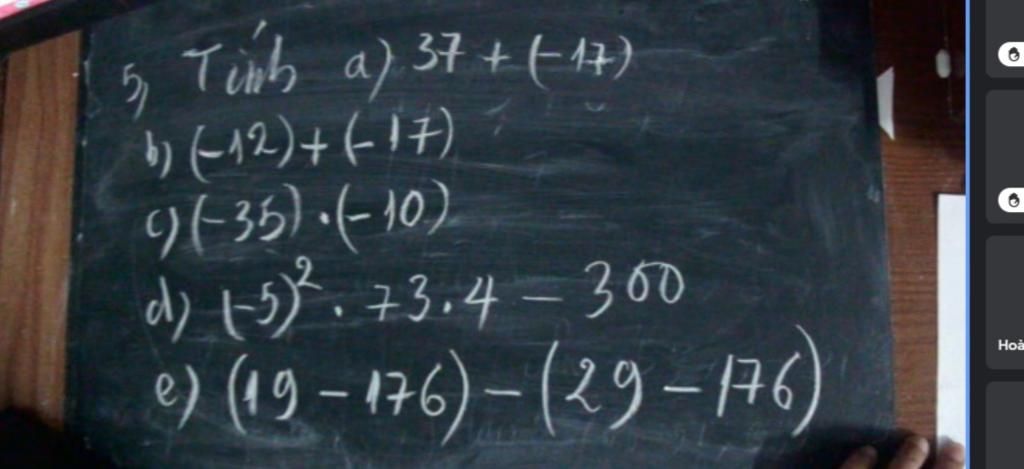 5, Tính a) 37 + (-17)
b) (-12) + (-17)
c) (-35) . (-10)
d) (-5)² . 73 . 4 - 300
e) (19 - 176) - (29 - 176)
Hoà